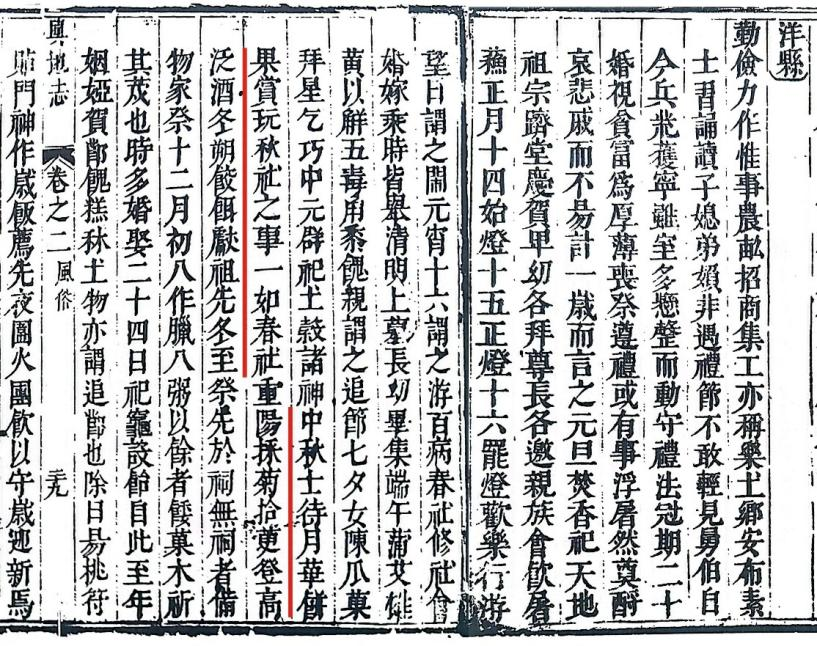 洋縣
勤儉力作惟事農畝招商集工亦稱樂土鄉安布素
士習誦讀子媳弟賴非遇禮節不敢輕見舅伯自
今兵荒獲寧雖室多懸罄而動守禮法冠期二十
婚視貧富爲厚薄喪祭遵禮或有事浮屠然奠酹
哀悲戚而不易計一歲而言之元旦焚香祀天地
祖宗躋堂慶賀甲幼各拜尊長各邀親族會飲屠
蘇正月十四始燈十五正燈十六罷燈歡樂行游
望日謂之鬧元宵十六謂之游百病春社修社會
婚嫁乘時皆舉清明上墓長幼畢集端午蒲艾
黄以解五毒用黍餽親謂之追節七夕女陳瓜菓
拜星乞巧中元辟祀土穀諸神中秋士待月華餅
果賞玩秋社之事一如春社重陽採菊拾萸登高
泛酒冬朔餃餌獻祖先冬至祭先於祠無祠者備
物家祭十二月初八作臘八粥以餘者餧菓木祈
其茂也時多婚娶二十四日祀竈設餄自此至年
姻婭賀節餽糕秫土物亦謂追節也除日易桃符
貼門神作歲飯薦先夜圍火團飲以守歲迎新焉
輿地志 卷之二 風俗 三九